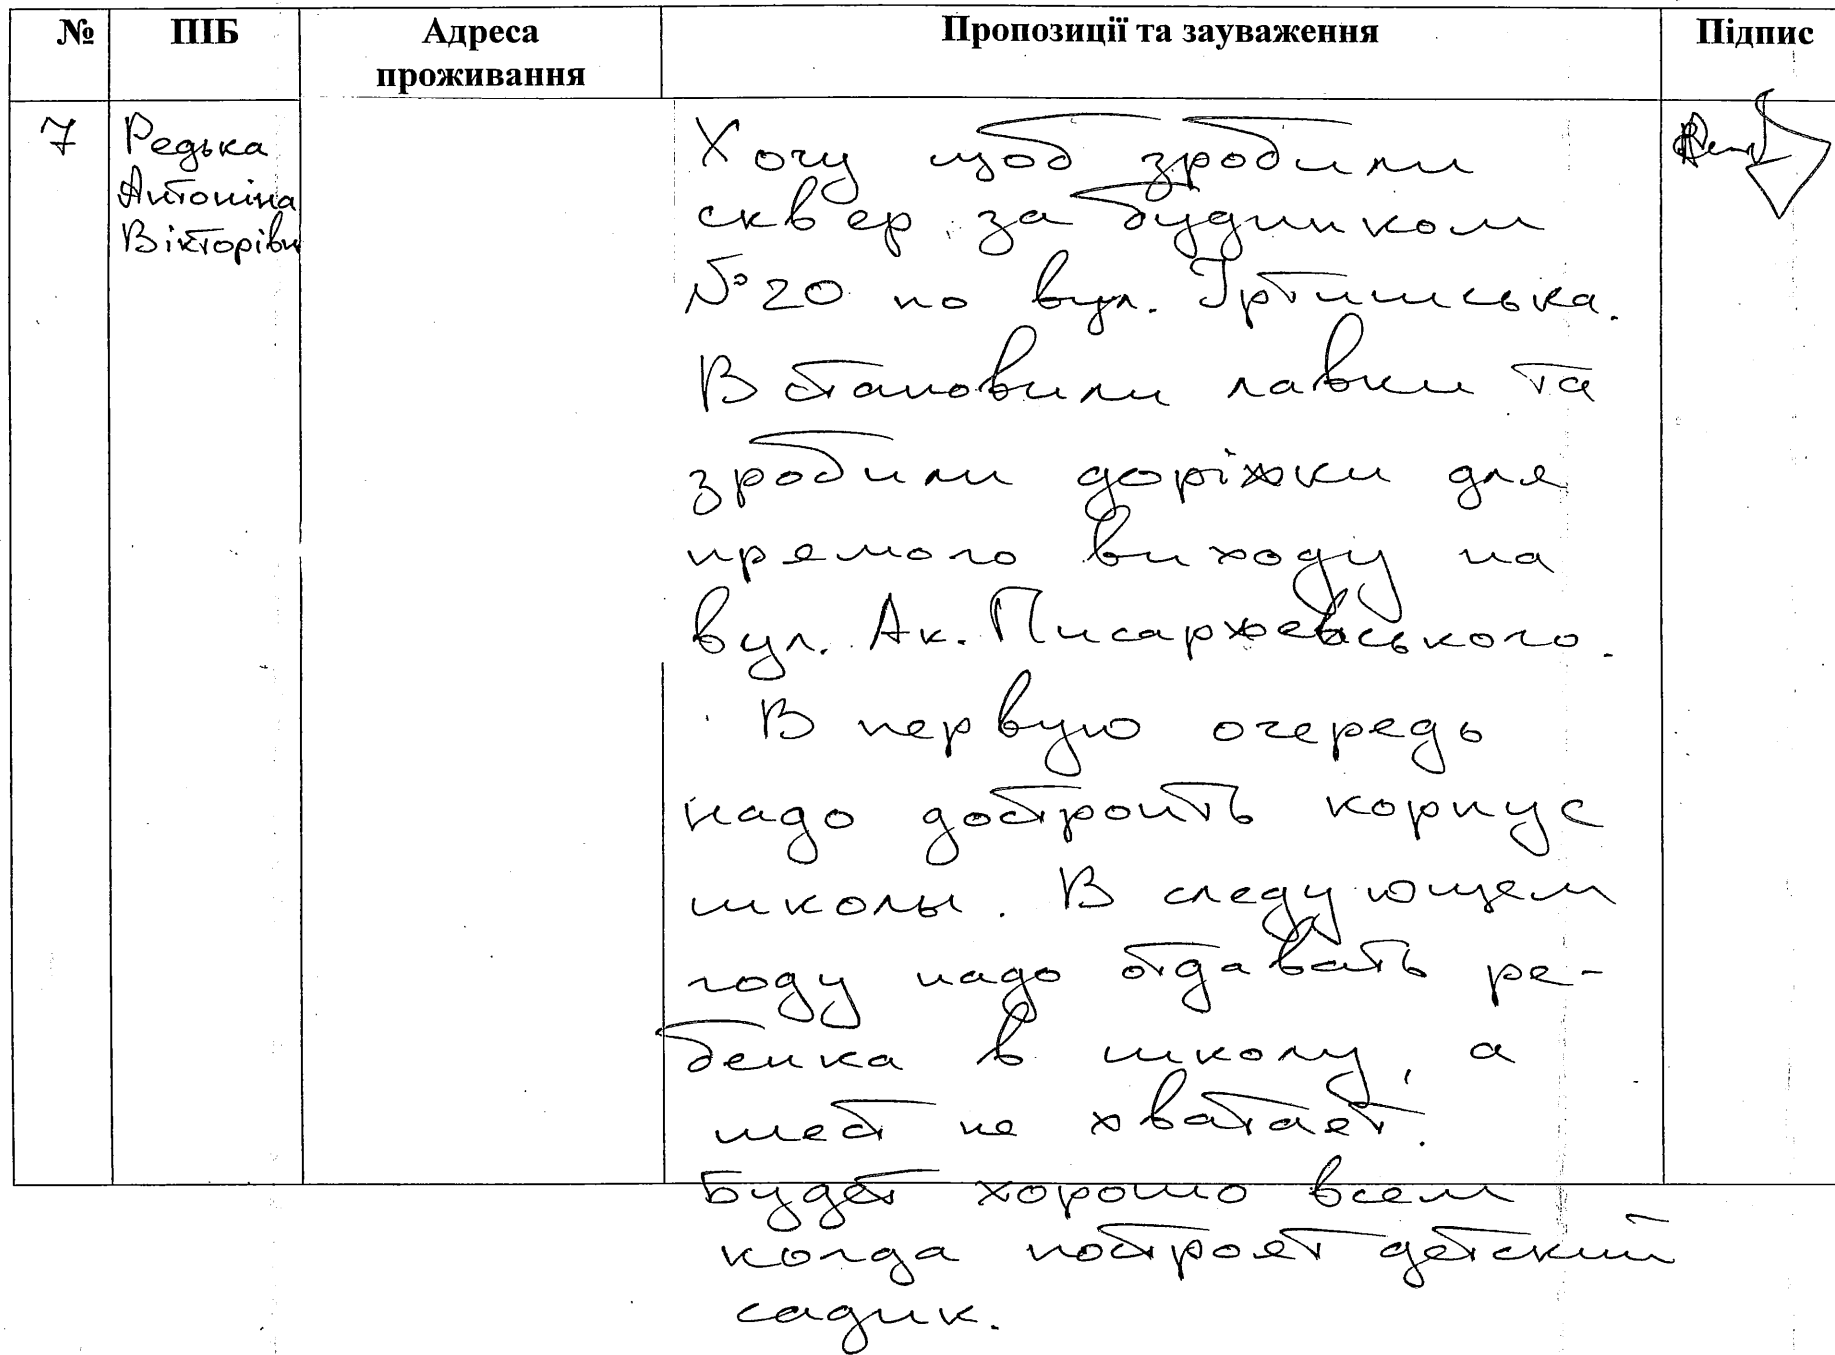 № ПІБ Адреса проживання Пропозиції та зауваження Підпис
7
Редька
Антоніна
Вікторівн
Хочу щоб зробили
скв'ер за будинком
№20 по вул. Іртишська.
Встановили лавки та
зробили доріжки для
прямого виходу на
вул. Ак. Писаржевського.
В первую очередь
надо достроить корпус
школы. В следующем
году надо отдавать ре-
бенка в школу, а
мест не хватает.
Будет хорошо всем
когда построят детский
садик.